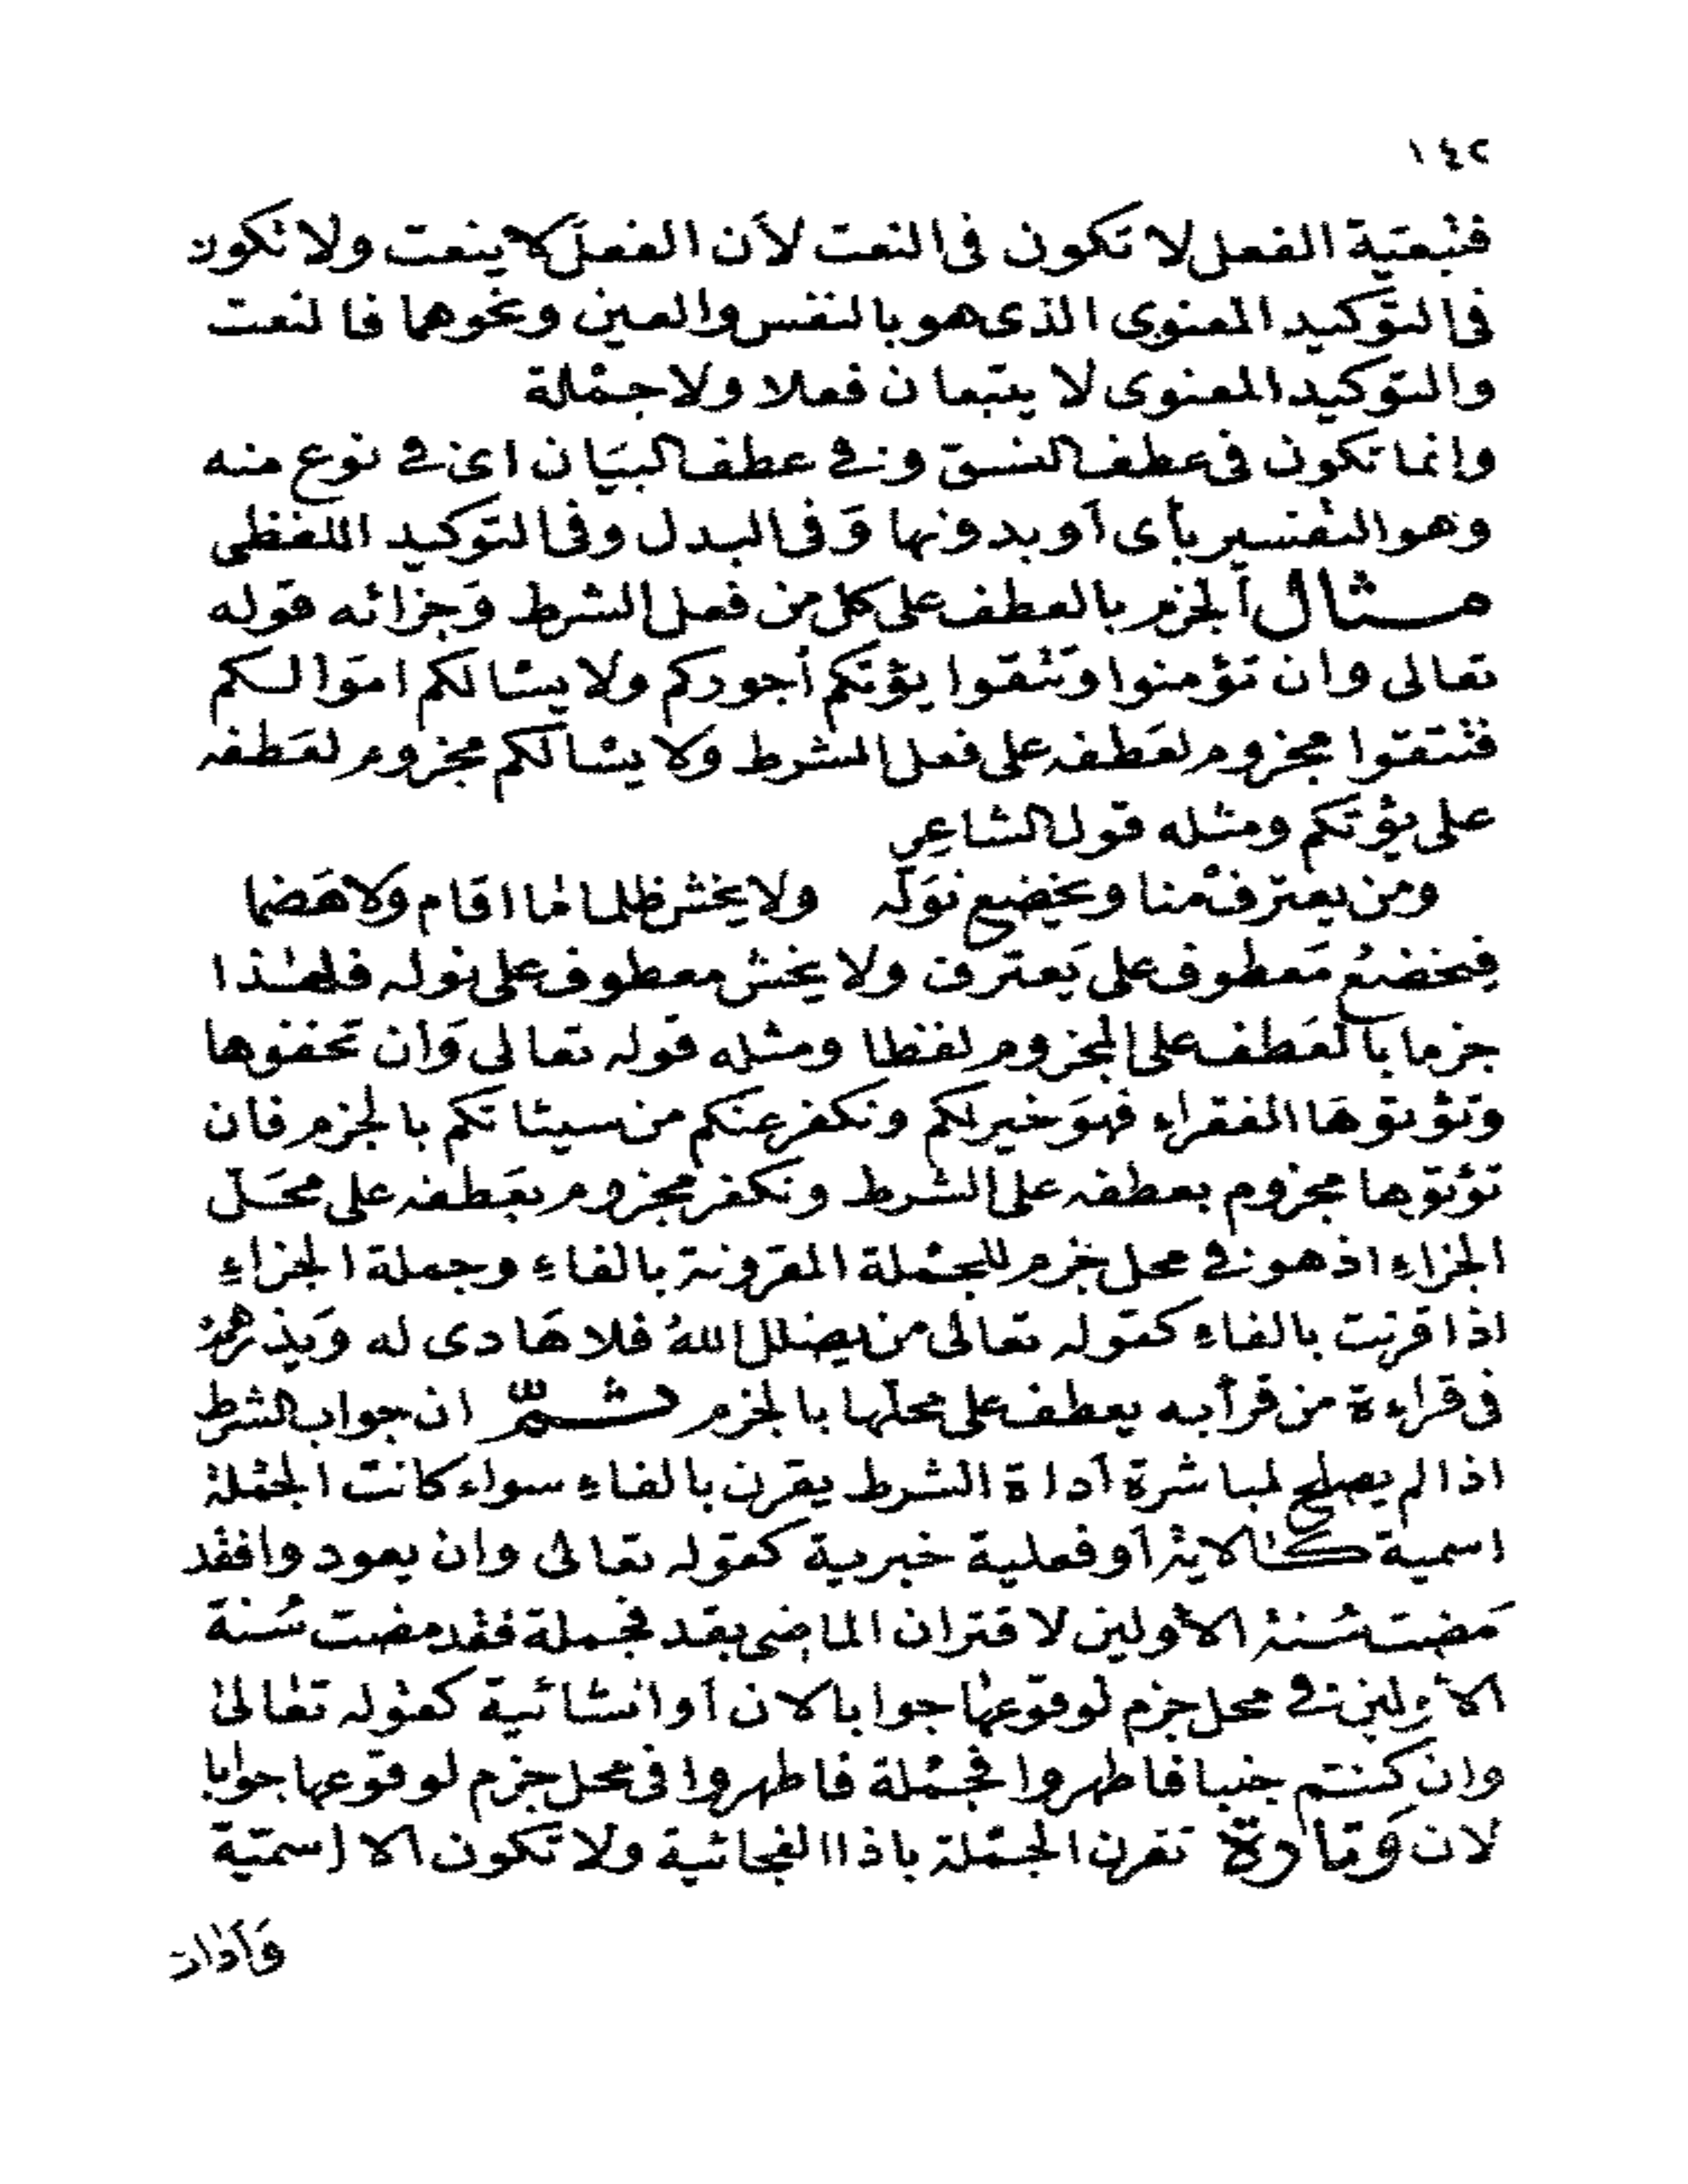 ١٤٢
فتبعية الفعل لا تكون فى النعت لأن الفعل لا ينعت ولا تكون
فى التوكيد المعنوى الذى هو بالنفس والعين ونحوهما فالنعت
والتوكيد المعنوى لا يتبعان فعلا ولا جملة
وانما تكون فى عطف النسق وفى عطف البيان اى فى نوع منه
وهو التفسير بأى أو بدونها وفى البدل وفى التوكيد اللفظى
مثال الجزم بالعطف على كل من فعل الشرط وجزائه قوله
تعالى وان تؤمنوا وتتقوا يؤتكم أجوركم ولا يسئالكم اموالكم
فتتقوا مجزوم لعطفه على فعل الشرط ولا يسئالكم مجزوم لعطفه
على يؤتكم ومثله قول الشاعر
ومن يعترف منا ويخضع نوله ولا يخش ظلما ما اقام ولا هضما
فيخضع معطوف على يعترف ولا يخش معطوف على نوله فلهذا
جزما بالعطف على المجزوم لفظا ومثله قوله تعالى وان تخفوها
وتؤتوها الفقراء فهو خير لكم ونكفر عنكم من سيئاتكم بالجزم فان
تؤتوها مجزوم بعطفه على الشرط ونكفر مجزوم بعطفه على محل
الجزاء اذ هو فى محل جزم للجملة المقرونة بالفاء وجملة الجزاء
اذا قرنت بالفاء كقوله تعالى من يضلل الله فلا هادى له ويذرهم
فى قراءة من قرأ به يعطف على محلها بالجزم ثم ان جواب الشرط
اذا لم يصلح لمباشرة أداة الشرط يقرن بالفاء سواء كانت الجملة
اسمية كالاية أو فعلية خبرية كقوله تعالى وان يعودوا فقد
مضت سنة الأولين لاقتران الماضى بقد فجملة فقد مضت سنة
الأولين فى محل جزم لوقوعها جوابا لان أو انشائية كقوله تعالى
وان كنتم جنبا فاطهروا فجملة فاطهروا فى محل جزم لوقوعها جوابا
لان وتارة تقرن الجملة باذا الفجائية ولا تكون الا اسمية